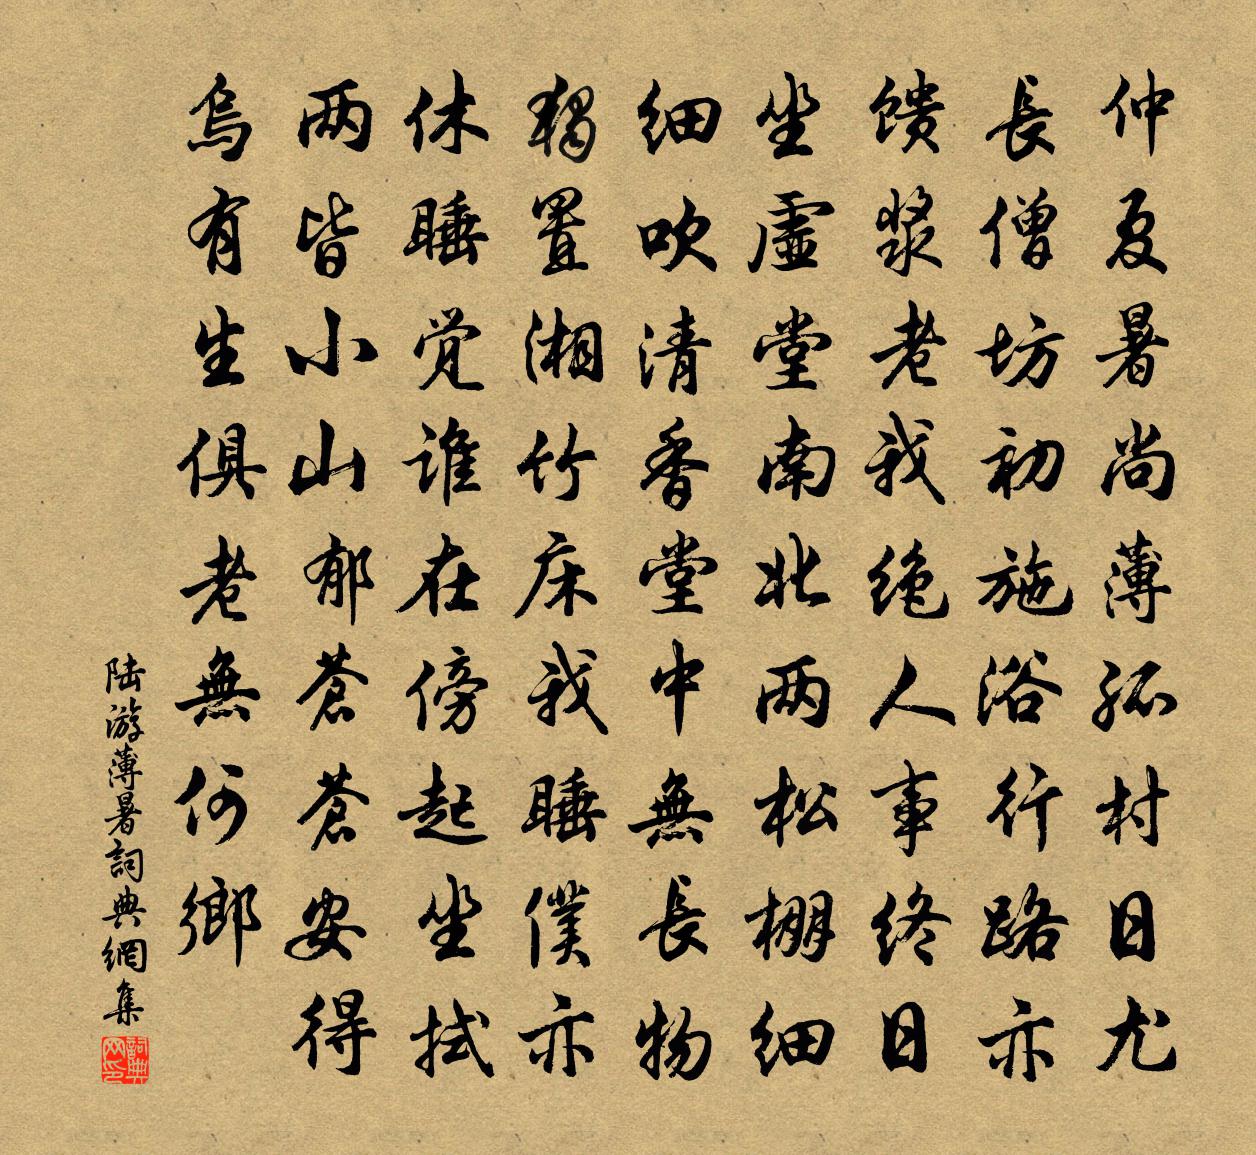 仲夏暑尚薄孤村日尤
長僧坊初施浴行路亦
馈漿老我绝人事终日
坐虛堂南北两松棚细
细吹清香堂中無長物
独置湘竹床我睡僕亦
休睡觉谁在傍起坐拭
两皆小山郁蒼蒼安得
烏有生俱老無何鄉
陆游薄暑詞典網集
詞典网印